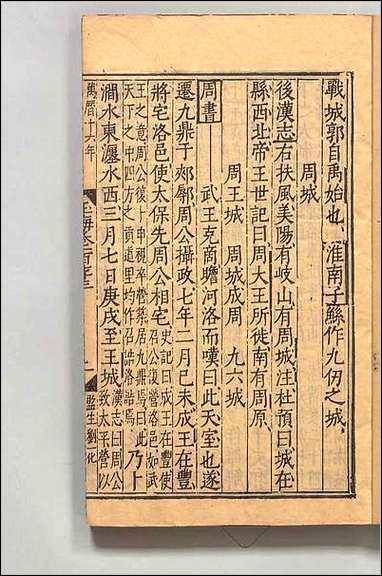 戰城郭自禹始也淮南子鯀作九仞之城
周城
後漢志右扶風美陽有岐山有周城注杜預曰城在
縣西北帝王世記曰周大王所徙南有周原
周王城 周城成周 九六城
周書 武王克商瞻河洛而嘆曰此天室也遂
遷九鼎于郟鄏周公攝政七年二月己未成王在豐
將宅洛邑使太保先周公相宅史記曰成王在豐使召公復營洛邑如武
王之意周公復卜申視卒營築居九鼎焉曰此天下之中四方入貢道里均作召誥洛誥焉乃卜
澗水東瀍水西三月七日庚戌至王城漢志曰周公致太平營以
萬曆十六年
監生劉一化